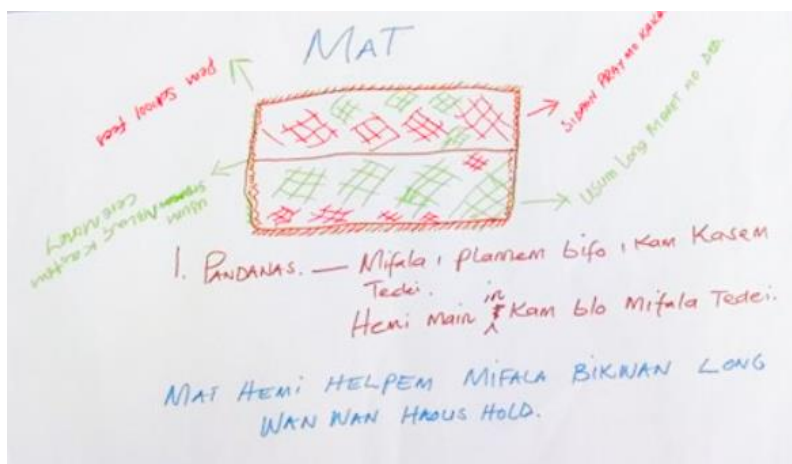 MAT
Pem School Feed
SIDAON PRAY MO KAKAE
USUM Long MARIT MO DED.
USUM
LONG KASTOM
CEREMONEY
1. PANDANAS. — Mifala i planem bifo i kam Kasem
Tedei.
Hemi main in Kam blo Mifala Tedei.
MAT HEMI HELPEM MIFALA BIKWAN LONG
WAN WAN HAOUS HOLD.